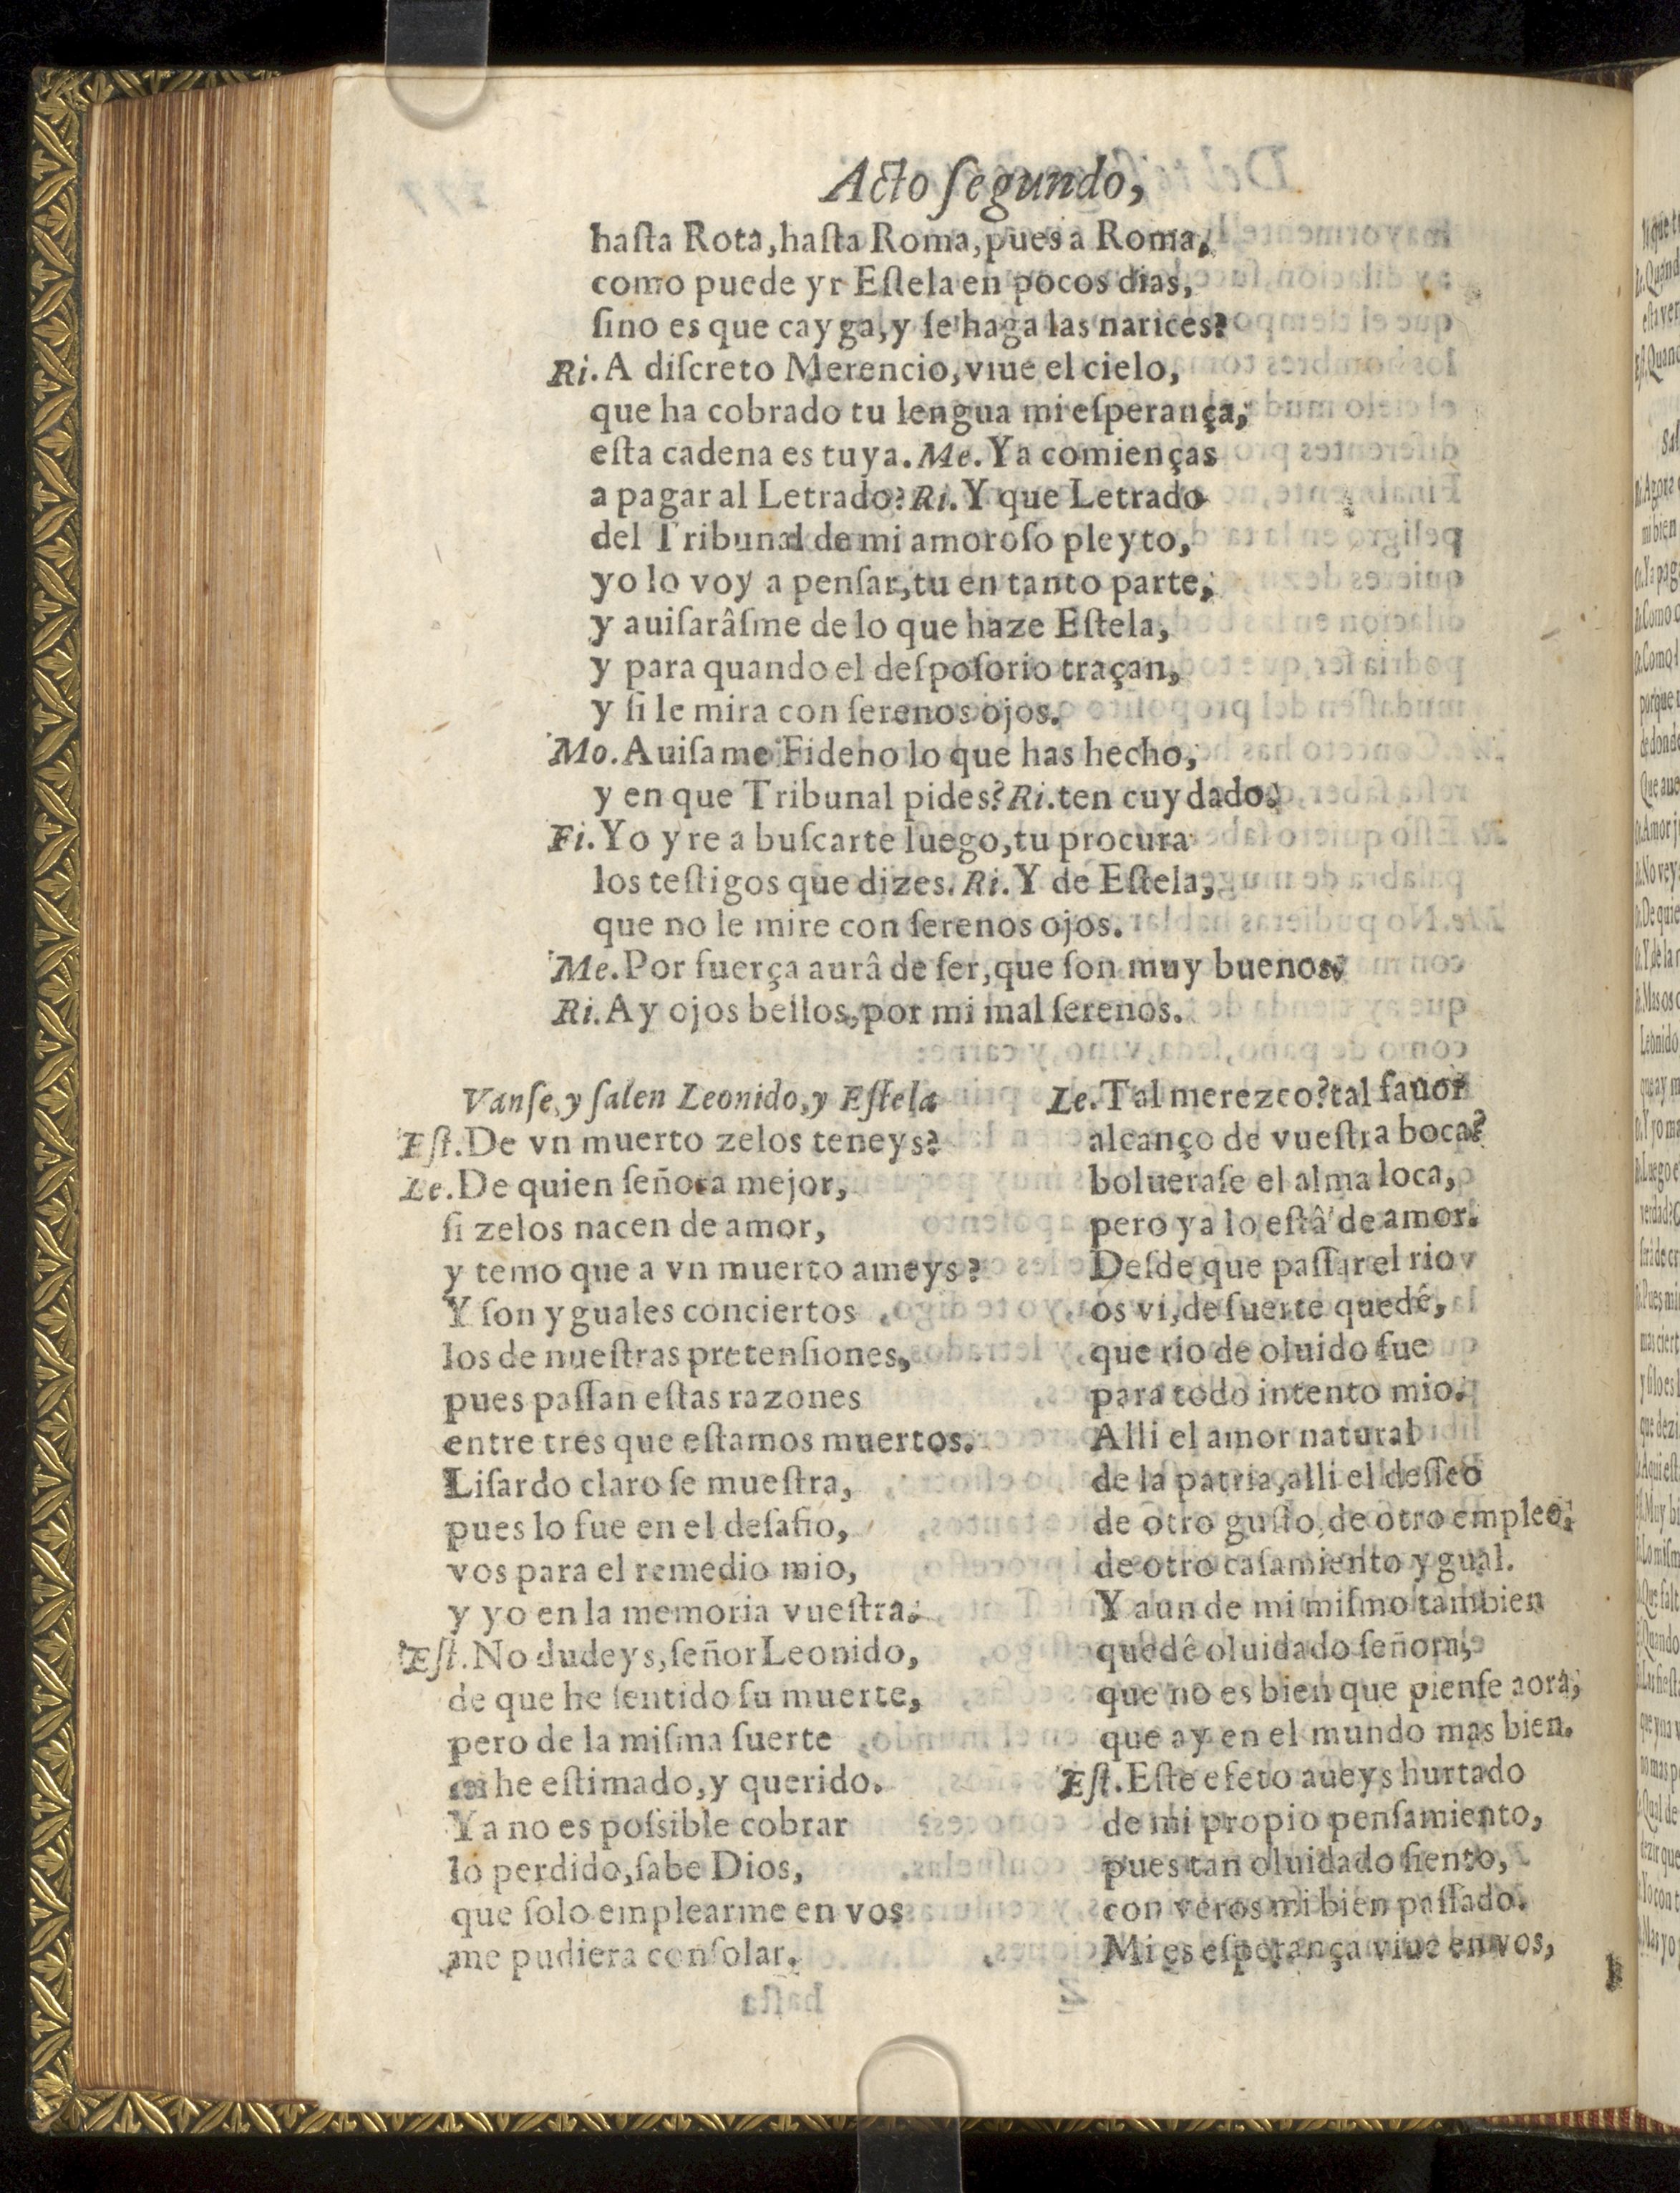 Acto ſegundo,
haſta Rota, haſta Roma, pues a Roma,
como puede yr Eſtela en pocos dias,
ſino es que cayga, y ſe haga las narices?
Ri. A diſcreto Merencio, viue el cielo,
que ha cobrado tu lengua mi eſperança,
eſta cadena es tuya. Me. Ya comienças
a pagar al Letrado? Ri. Y que Letrado
del Tribunal de mi amoroſo pleyto,
yo lo voy a penſar, tu en tanto parte,
y auiſarâſme de lo que haze Eſtela,
y para quando el deſpoſorio traçan,
y ſi le mira con ſerenos ojos.
Mo. Auiſame Fideno lo que has hecho,
y en que Tribunal pides? Ri. ten cuydado.
Fi. Yo yre a buſcarte luego, tu procura
los teſtigos que dizes. Ri. Y de Eſtela,
que no le mire con ſerenos ojos.
Me. Por fuerça aurâ de ſer, que ſon muy buenos.
Ri. Ay ojos bellos, por mi mal ſerenos.
Vanſe, y ſalen Leonido, y Eſtela
Eſt. De vn muerto zelos teneys?
Le. De quien ſeñora mejor,
ſi zelos nacen de amor,
y temo que a vn muerto ameys?
Y ſon yguales conciertos
los de nueſtras pretenſiones,
pues paſſan eſtas razones
entre tres que eſtamos muertos.
Liſardo claro ſe mueſtra,
pues lo fue en el deſafio,
vos para el remedio mio,
y yo en la memoria vueſtra.
Eſt. No dudeys, ſeñor Leonido,
de que he ſentido ſu muerte,
pero de la miſma ſuerte
he eſtimado, y querido.
Ya no es poſsible cobrar
lo perdido, ſabe Dios,
que ſolo emplearme en vos
me pudiera conſolar.
Le. Tal merezco? tal fauor
alcanço de vueſtra boca?
bolueraſe el alma loca,
pero ya lo eſtâ de amor.
Deſde que paſſar el rio
os vi, de ſuerte quedê,
que rio de oluido fue
para todo intento mio.
Alli el amor natural
de la patria, alli el deſſeo
de otro guſto, de otro empleo,
de otro caſamiento ygual.
Y aun de mi miſmo tambien
quedê oluidado ſeñora,
que no es bien que pienſe aora,
que ay en el mundo mas bien.
Eſt. Eſte efeto aueys hurtado
de mi propio penſamiento,
pues tan oluidado ſiento,
con veros mi bien paſſado.
Mi eſperança viue en vos,